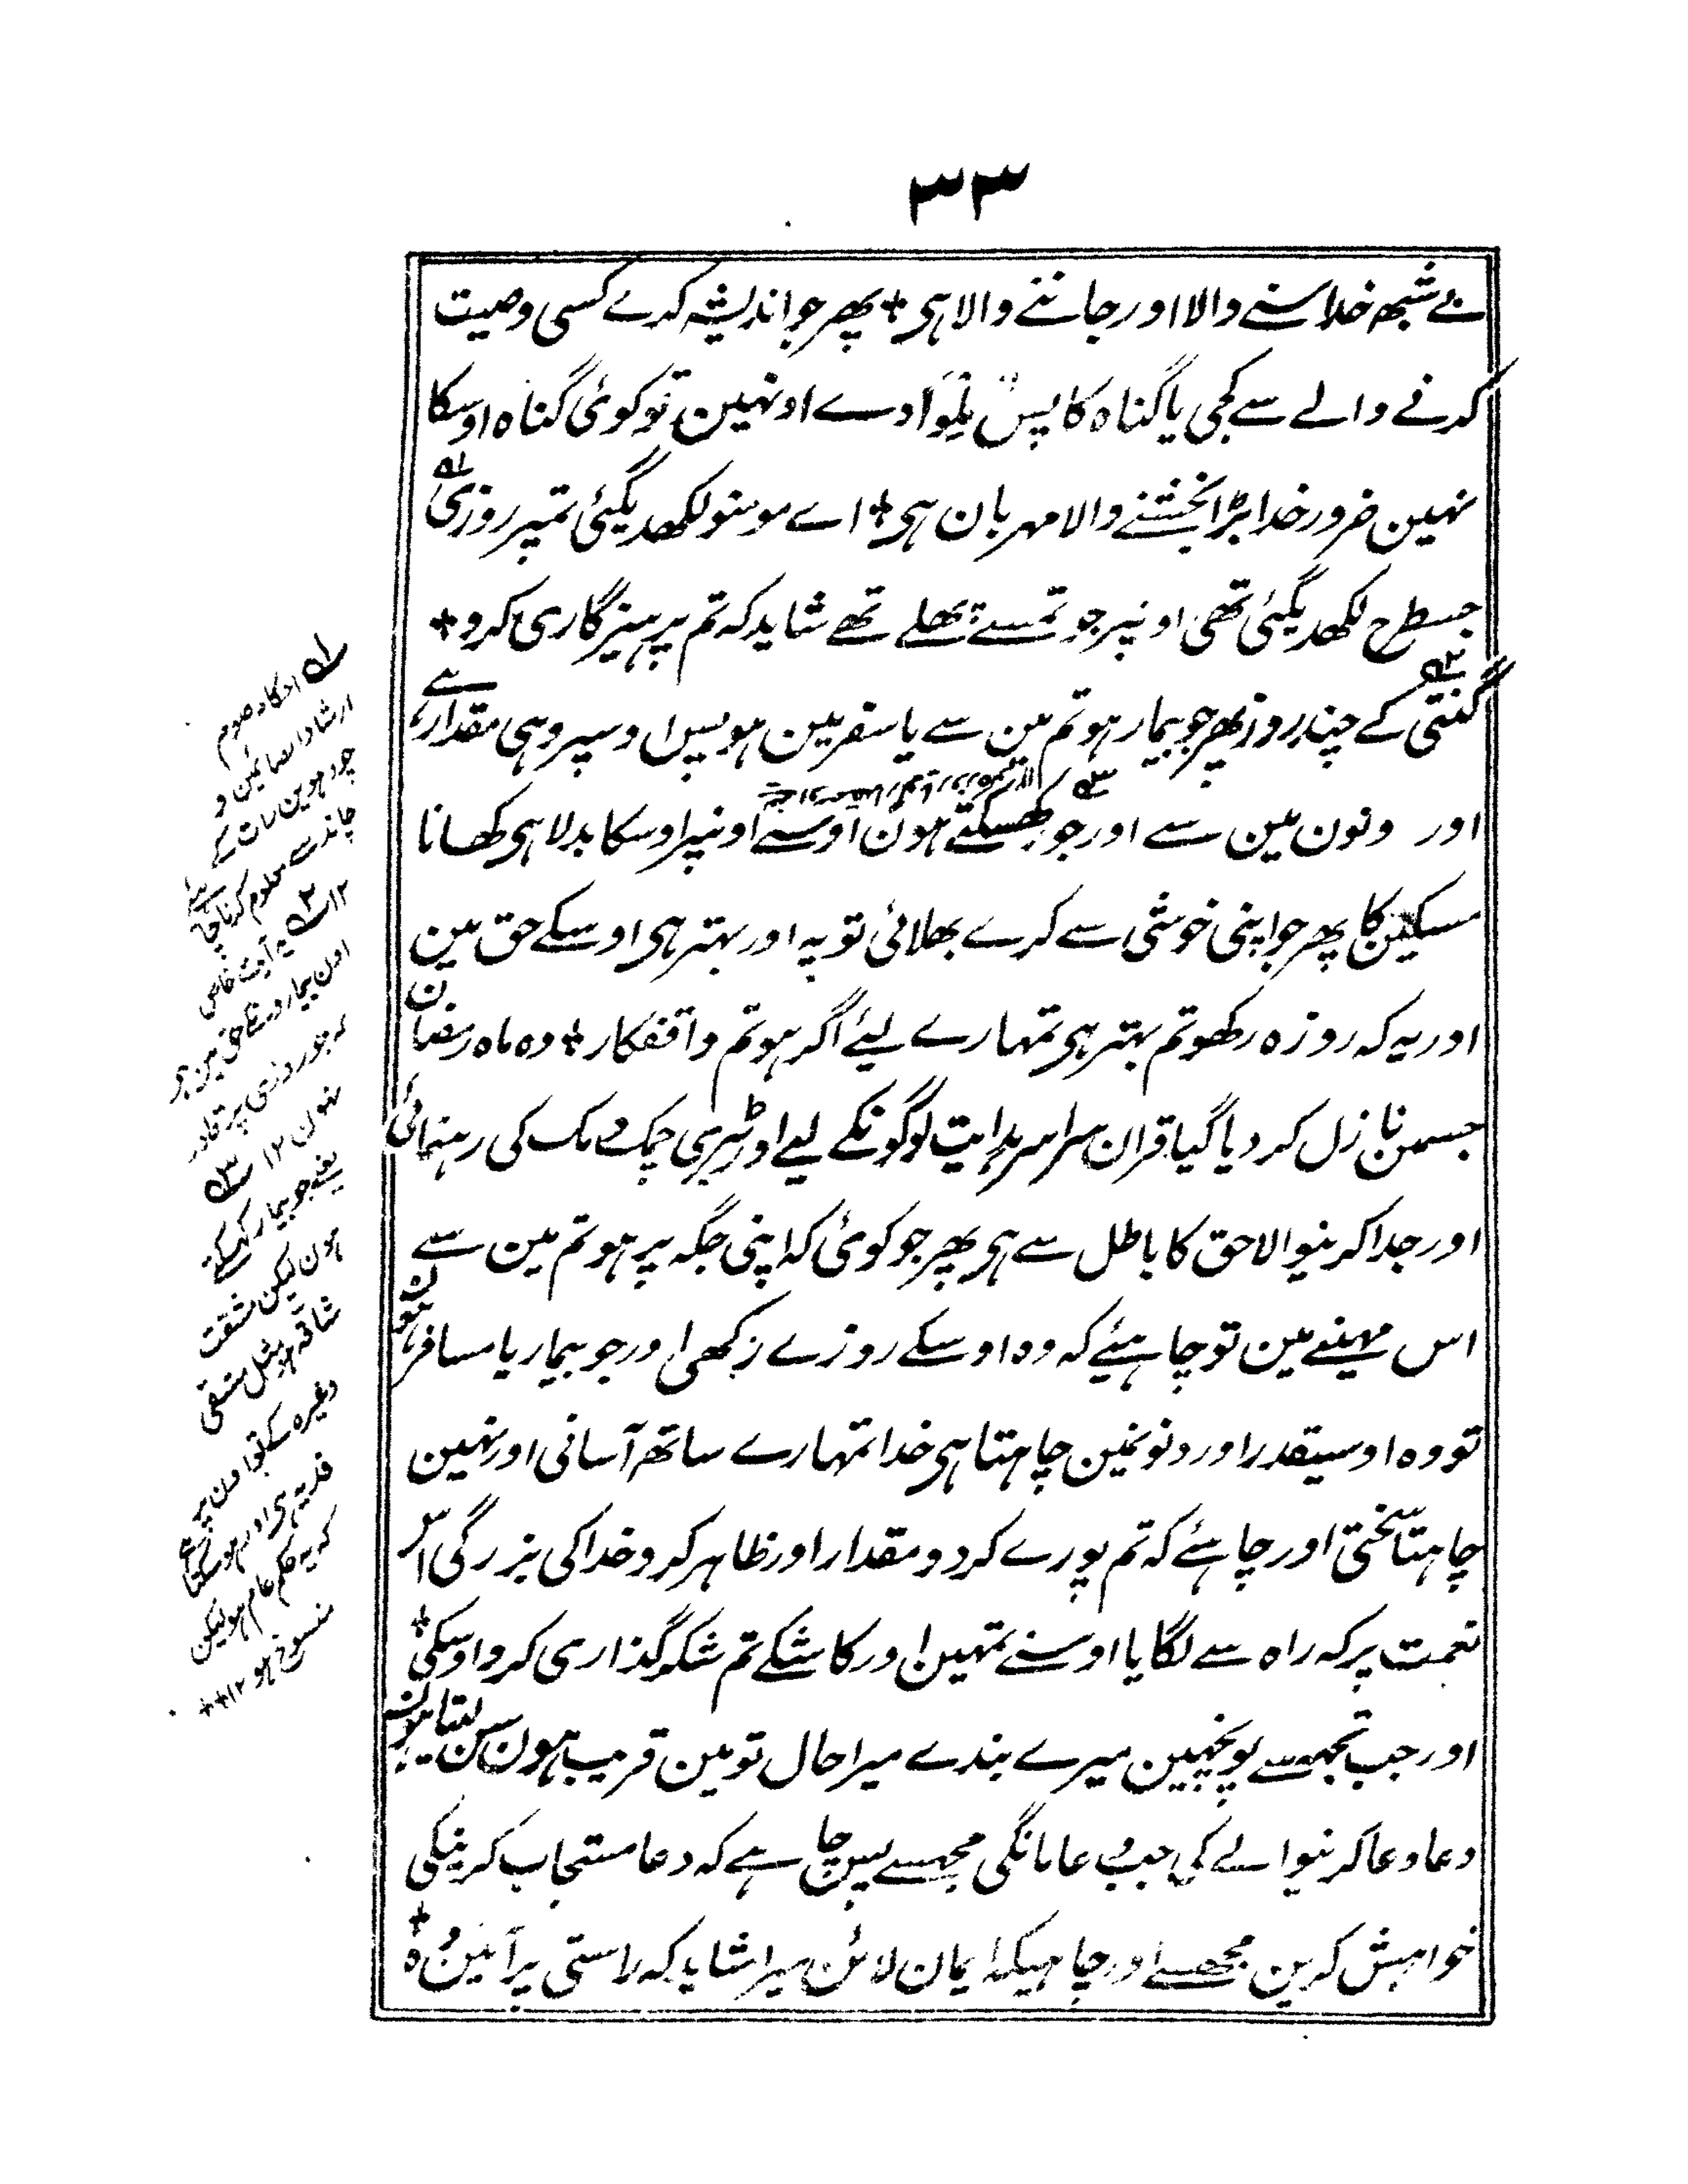 ٣٣
بے شبھ خدا سننے والا اور جاننے والا ہی + پھر جو اندیشہ کرے کسی وصیت
کرنے والے سے کجی یا گناہ کا پس ملوا دے اونہین تو کوئی گناہ اوسکا
نہین ضرور خدا بڑا بخشنے والا مہربان ہی + اے مومنو لکھدیگئی تمپر روزی
جسطرح لکھدیگئی تھی اونپر جو تمسے پھلے تھے شاید کہ تم پرہیزگاری کرو +
گنتی کے چند روز پھر جو بیمار ہو تم مین سے یا سفر مین ہو پس اوسپر وہی مقدار ہے
اور دنون مین سے اور جو کھسکتے ہون اوسے اونپر اوسکا بدلا ہی کھانا
مسکین کا پھر جو اپنی خوشی سے کرے بھلائی تو یہ اور بہتر ہی اوسکے حق مین
اور یہ کہ روزہ رکھو تم بہتر ہی تمہارے لیئے اگر ہو تم واقفکار + وہ ماہ رمضان
جسمن نازل کر دیا گیا قران سراسر ہدایت لوگونکے لیے اور بڑی چمک دمک کی رہنمائی
اور جدا کرنیوالا حق کا باطل سے ہی پھر جو کوئی کہ اپنی جگہ پر ہو تم مین سے
اس مہینے مین تو چاہیئے کہ وہ اوسکے روزے رکھی اور جو بیمار یا مسافر
تو وہ اوسیقدر اور دنونمین چاہتا ہی خدا تمہارے ساتھ آسانی اور نہین
چاہتا سختی اور چاہئے کہ تم پورے کر دو مقدار اور ظاہر کرو خدا کی بزرگی اس
نعمت پر کہ راہ سے لگایا اوسنے تمہین اور کاشکے تم شکر گذاری کرو اوسکی +
اور جب تجھسے پونچھین میرے بندے میرا حال تو مین قریب ہون سن لیتا ہون
دعا دعا کرنیوالے کی جب دعا مانگی مجھسے پس چاہے کہ دعا مستجاب کرنیکی
خواہش کرین مجھسے اور چاہیکہ ایمان لائن میرا شاید کہ راستی پر آئین وہ +
احکام صوم
ارشاد
چودہوین رات کے
چاند سے معلوم کرنا چاہیے
١٢ یہ آیت خاص
اون بیمارونکے حق مین ہی
کہ جو روزی پر قادر
نہون ١٢
یعنے جو بیمار کہسکتے
ہون لیکن مشقت
شاقہ ہو مثل
وغیرہ کے تو اون پر
فدیہ ہی اور ہو سکتا ہے
کہ یہ حکم عام ہو لیکن
منسوخ ہو ١٢ ++